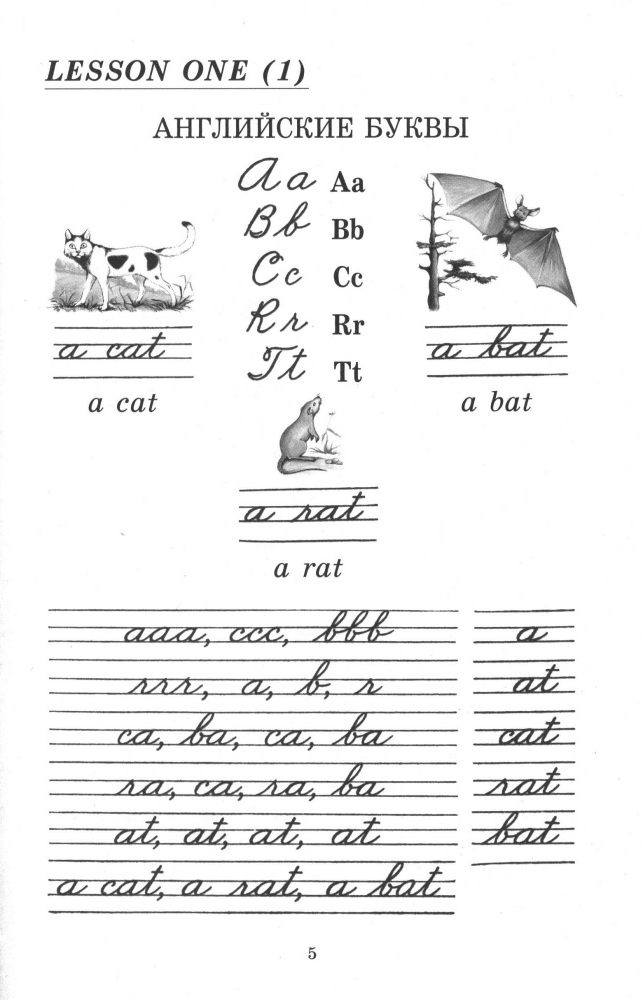 LESSON ONE (1)
АНГЛИЙСКИЕ БУКВЫ
Aa Aa
Bb Bb
Cc Cc
Rr Rr
Tt Tt
a cat
a cat
a bat
a bat
a rat
a rat
aaa, ccc, bbb
rrr, a, b, r
ca, ba, ca, ba
ra, ca, ra, ba
at, at, at, at
a cat, a rat, a bat
a
at
cat
rat
bat
5